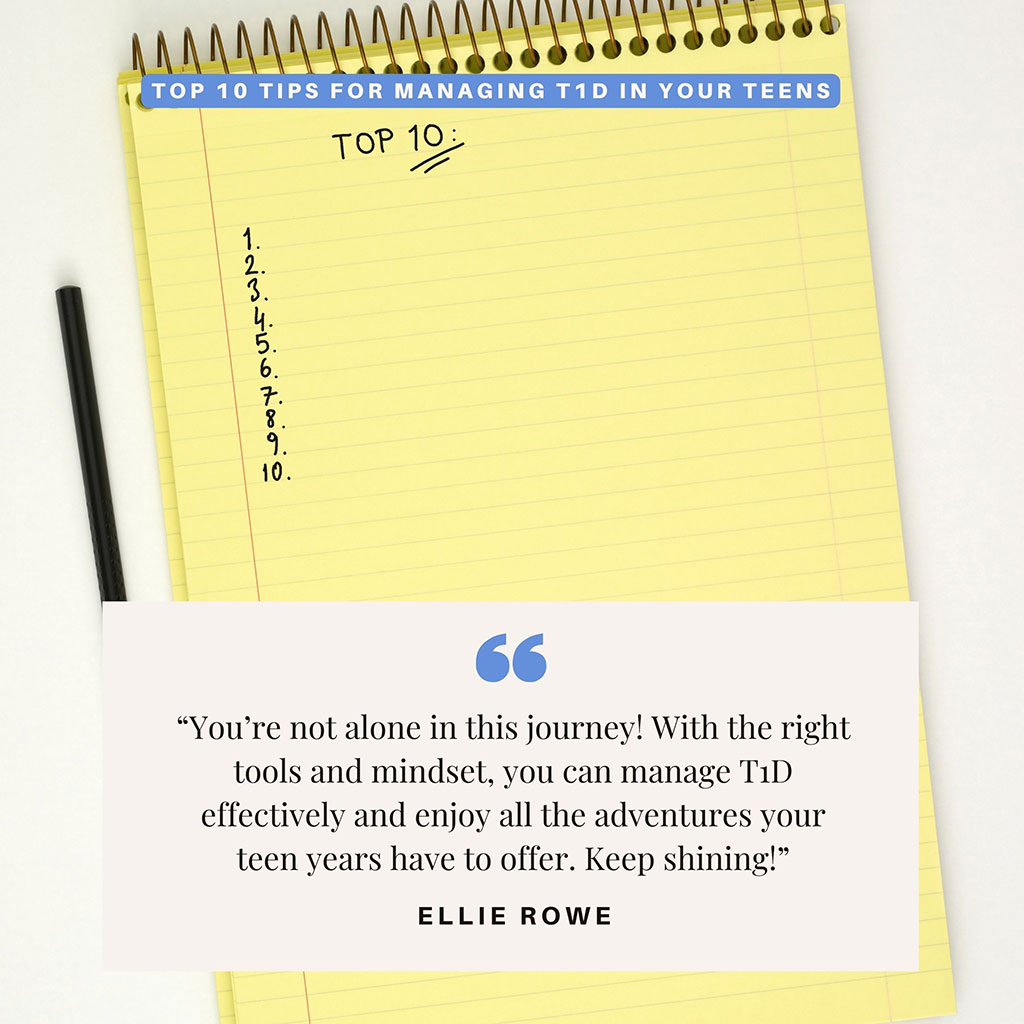 TOP 10 TIPS FOR MANAGING T1D IN YOUR TEENS
TOP 10:
1.
2.
3.
4.
5.
6.
7.
8.
9.
10.
“
“You’re not alone in this journey! With the right
tools and mindset, you can manage T1D
effectively and enjoy all the adventures your
teen years have to offer. Keep shining!”
ELLIE ROWE